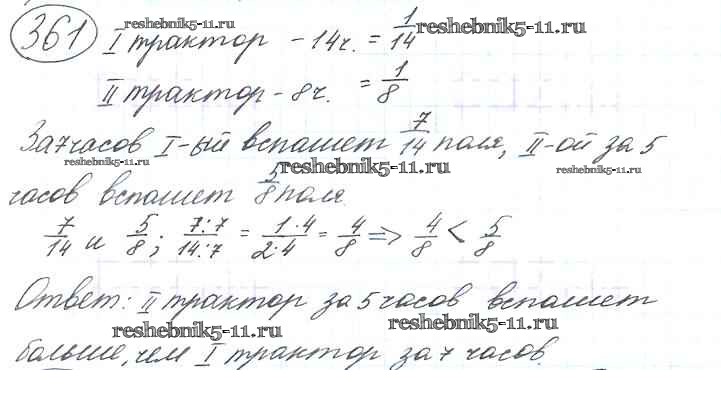 361 I трактор - 14ч. = 1/14 reshebnik5-11.ru
II трактор - 8ч. = 1/8
За 7 часов I-ый вспашет 7/14 поля, II-ой за 5
reshebnik5-11.ru reshebnik5-11.ru reshebnik5-11.ru
часов вспашет 5/8 поля.
7/14 и 5/8; 7:7/14:7 = 1·4/2·4 = 4/8 => 4/8 < 5/8
Ответ: II трактор за 5 часов вспашет
reshebnik5-11.ru reshebnik5-11.ru
больше, чем I трактор за 7 часов.